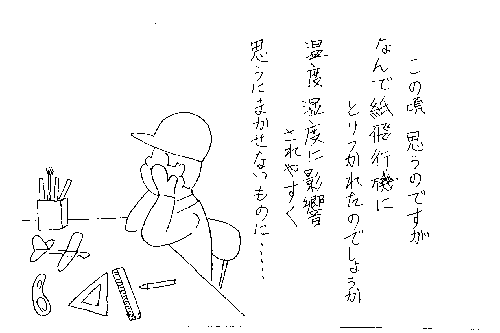 この頃 思うのですが
なんで紙飛行機に
とりつかれたのでしょうか
温度湿度に影響
されやすく
思うにまかせないものに……